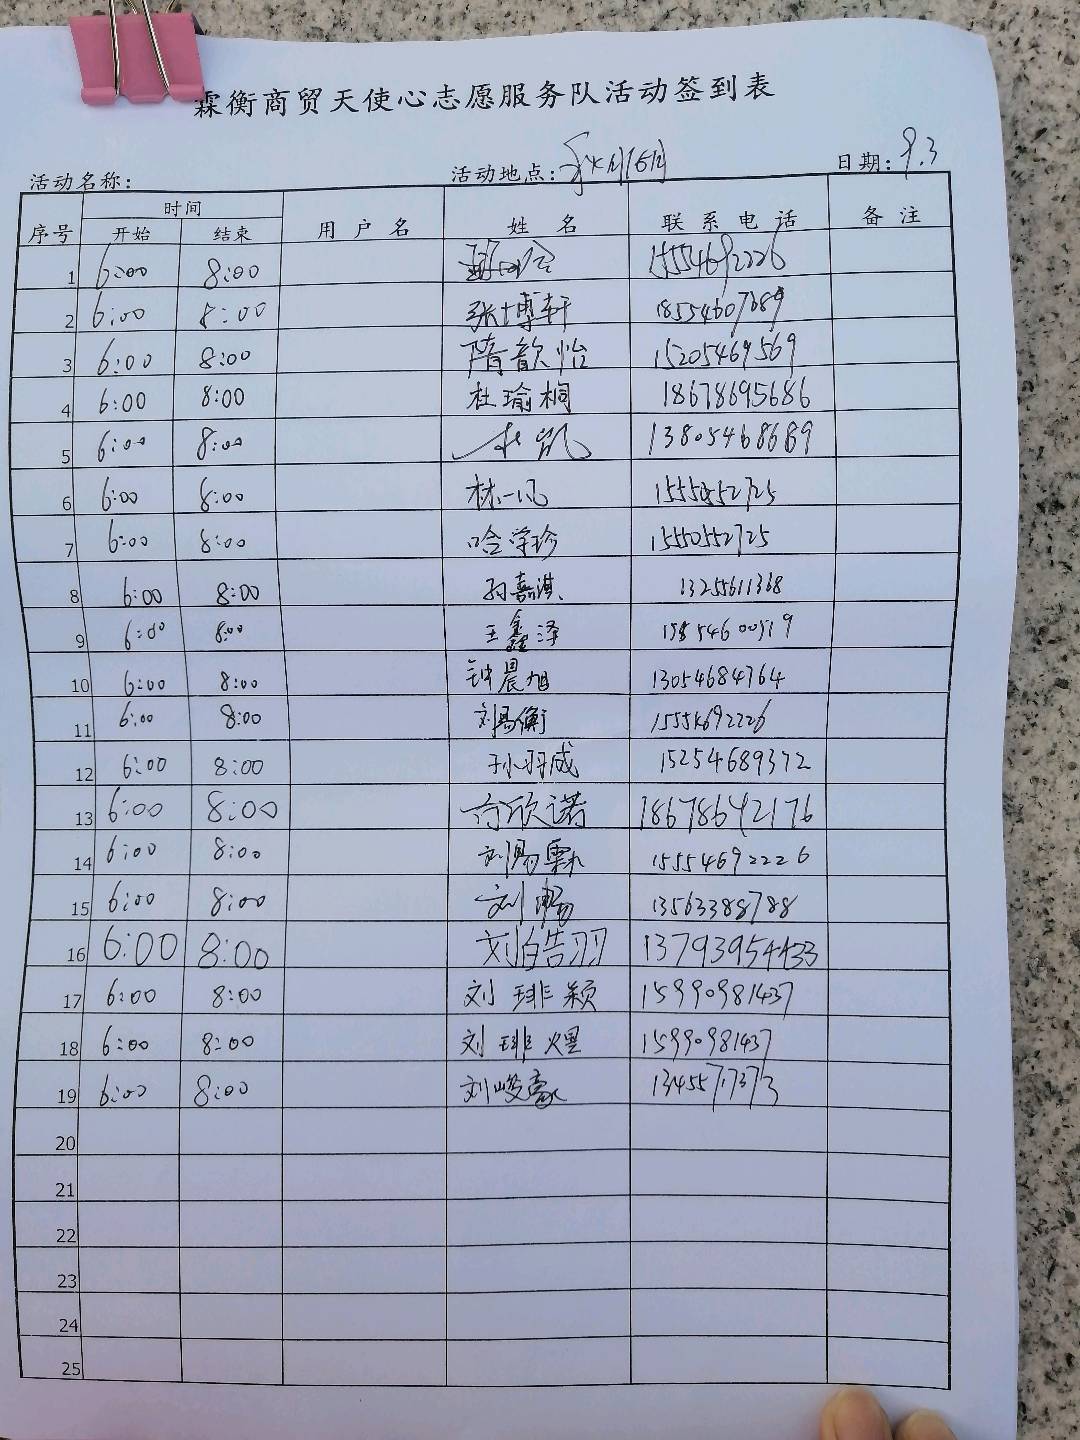 霖衡商贸天使心志愿服务队活动签到表
活动名称: 活动地点: 日期: 9.3
序号 时间 用户名 姓名 联系电话 备注
开始 结束
1 6:00 8:00 15554692226
2 6:00 8:00 张博轩 18554607689
3 6:00 8:00 隋歆怡 15205469569
4 6:00 8:00 杜瑜桐 18678695686
5 6:00 8:00 杜凯 13805468689
6 6:00 8:00 林一凡 15550552725
7 6:00 8:00 哈学珍 15550552725
8 6:00 8:00 孙嘉淇 13255611368
9 6:00 8:00 王鑫泽
10 6:00 8:00 钟晨旭 13054684764
11 6:00 8:00 刘易衡 15554692226
12 6:00 8:00 孙羽成 15254689372
13 6:00 8:00 欣诺 18678642176
14 6:00 8:00 刘易霖 15554692226
15 6:00 8:00 刘畅 13563388788
16 6:00 8:00 刘皓羽 13793954433
17 6:00 8:00 刘琲颖 15990981437
18 6:00 8:00 刘琲煜 15990981437
19 6:00 8:00 刘峻豪 13455717373
20
21
22
23
24
25